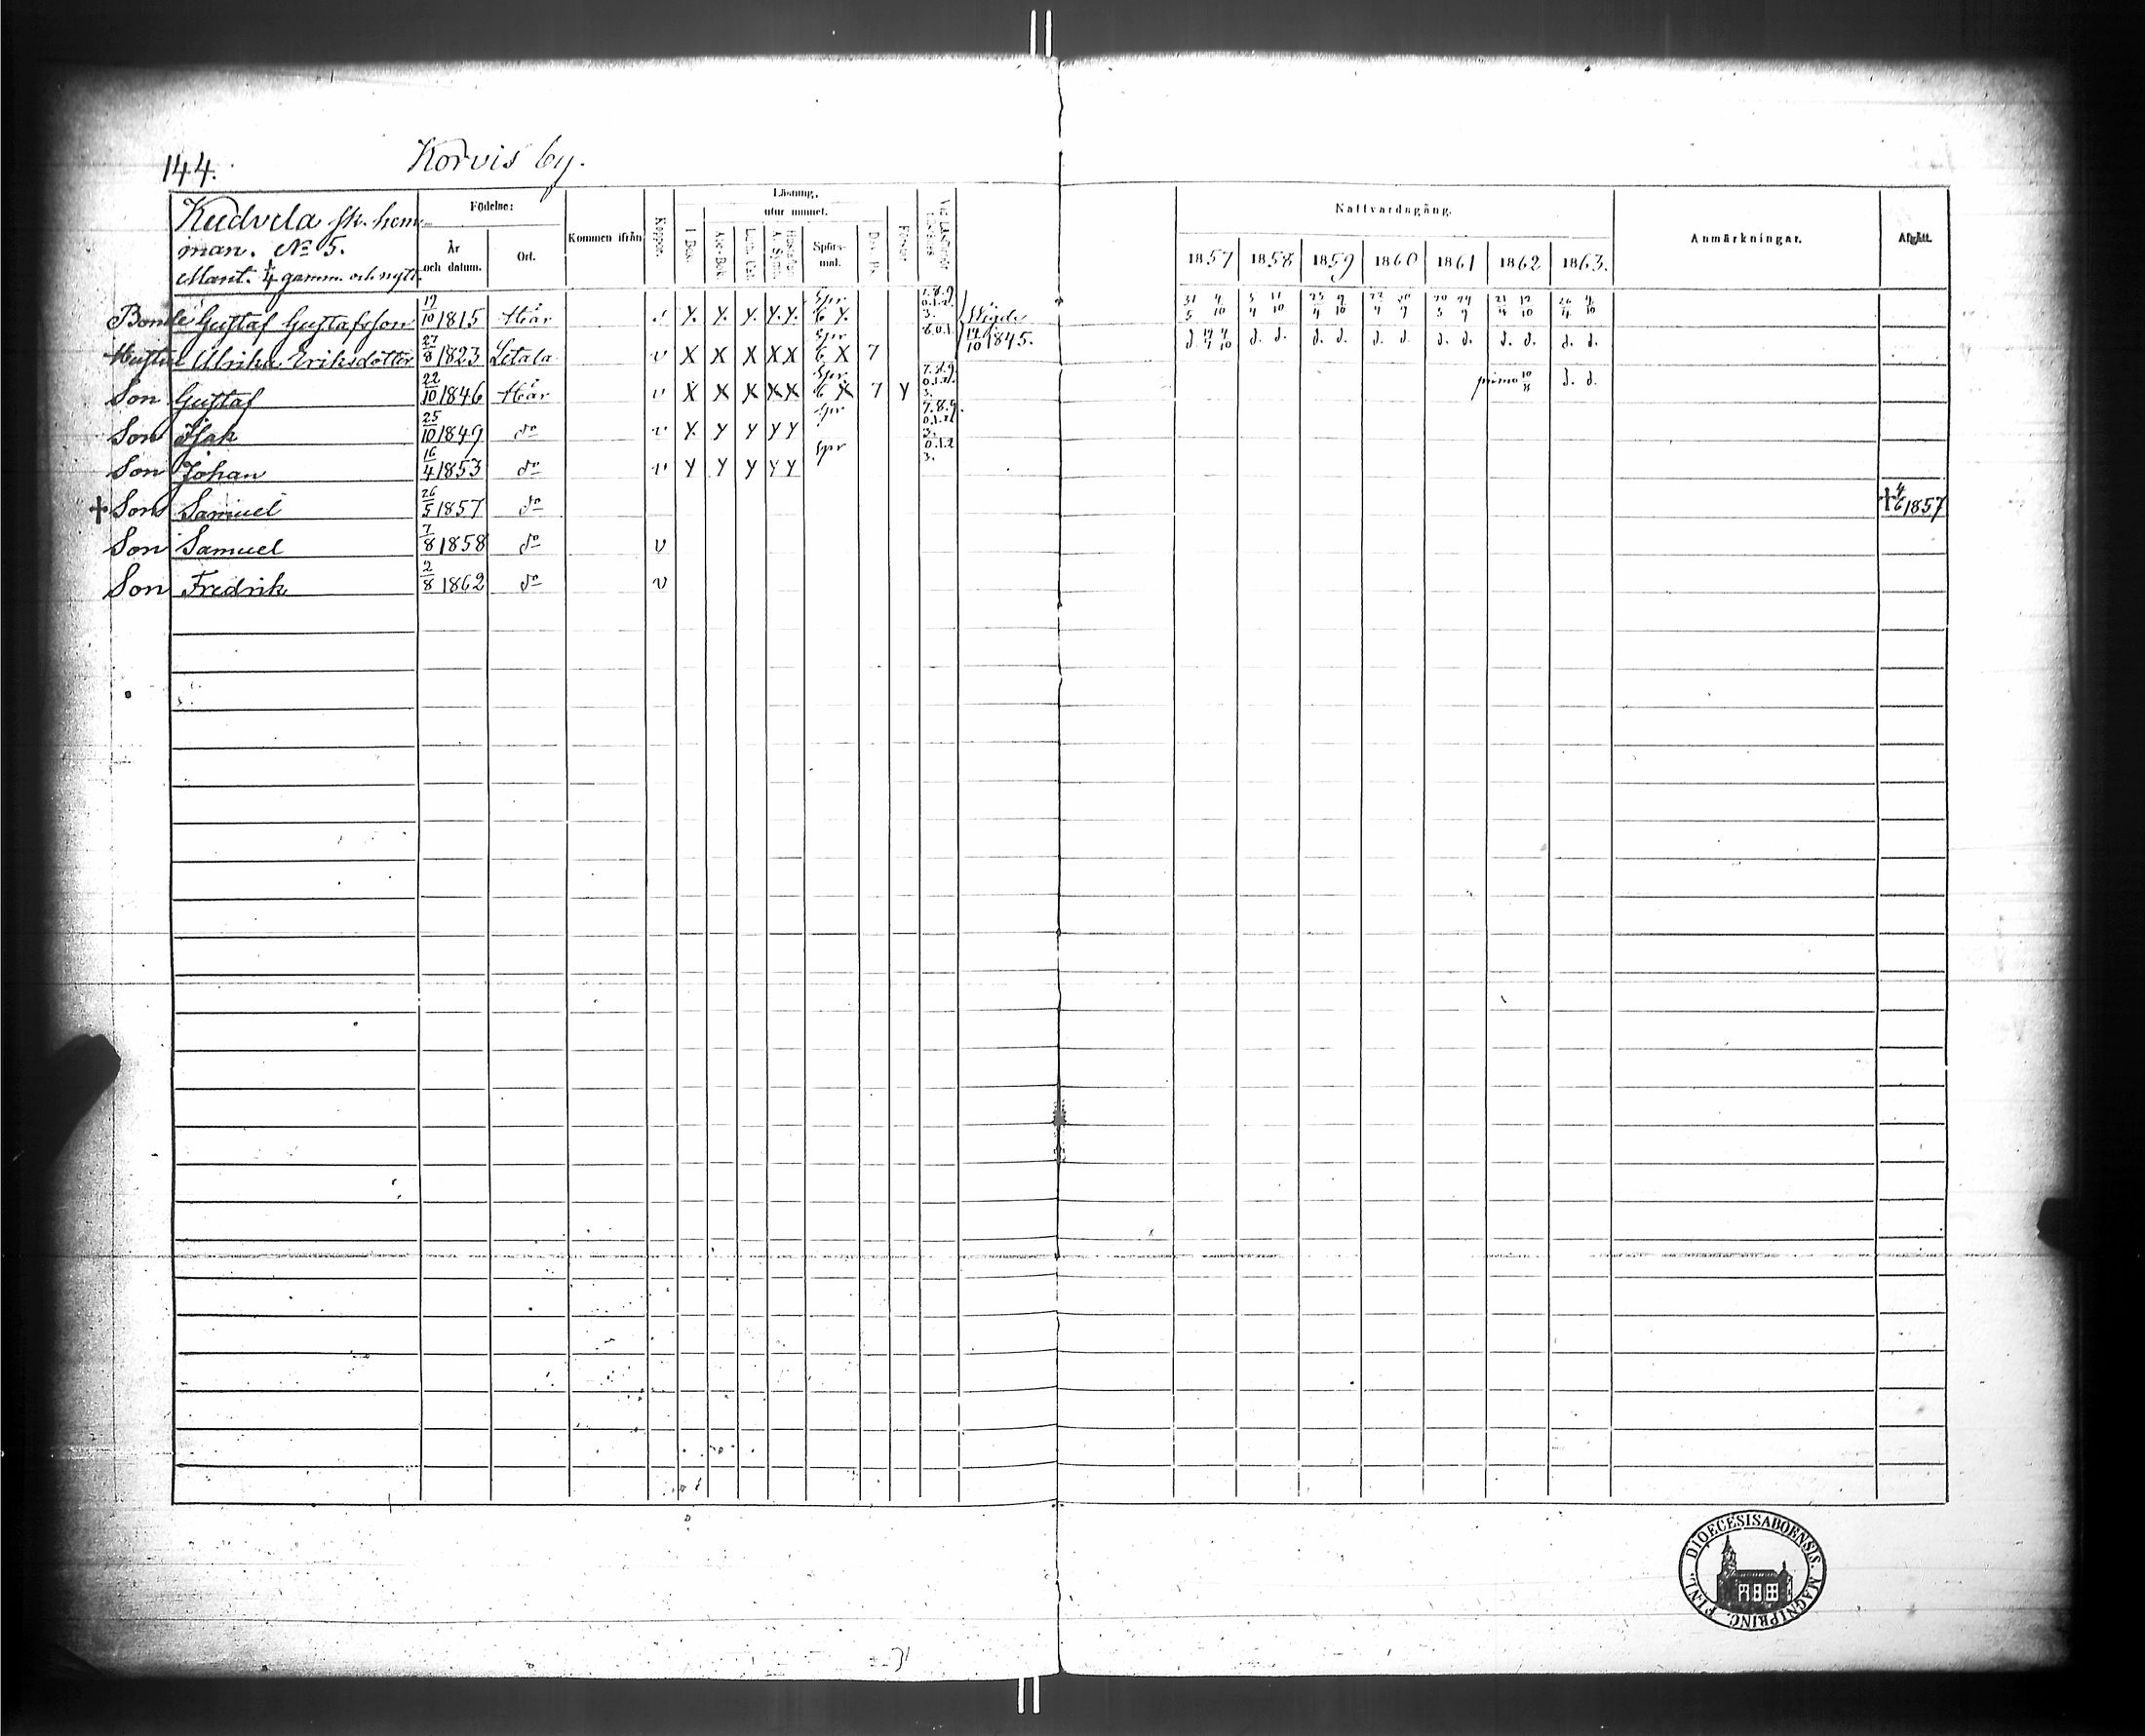 144.
Korvis by.
Kudvela sk. hem
man. No 5.
Mant. 1/4 gamm. och nytt.
Födelse:
År och datum.
Ort.
Kommen ifrån
Koppor.
Läsning,
utur minnet.
I Bok.
Abc-Bok.
Luth. Cat.
Spörs-mål.
Dav. Ps.
Förstår
Nattvardsgång.
1857 1858 1859 1860 1861 1862 1863.
Anmärkningar.
Afgått.
Bonde Gustaf Gustafsson 19/10 1815 Här Y. Y. Y. Y. Y. Spr 6 Y. 7.8.9. 0.1.2. 3. Vigde 31/5 4/10
Hustru Ulrika Eriksdotter 27/8 1823 Letala v X X X X X Spr 6 X 7 8.0.1. 14/10 1845. d. d. d. d. d. d. d. d. d. d. d. d. d.
Son Gustaf 22/10 1846 Här v X X X X X Spr 6 X 7 Y 7.8.9. 0.1.2. 3. primo 10/8 d. d.
Son Isak 25/10 1849 do v Y. Y Y Y Y Spr 7.8.9. 0.1.2 3.
Son Johan 16/4 1853 do v Y Y Y Y Y Spr 0.1.2 3.
+ Son Samuel 26/5 1857 do + 4/6 1857
Son Samuel 7/8 1858 do v
Son Fredrik 2/8 1862 do v
DIOECESIS ABOENSIS. MAGNI PRINC. FINL.